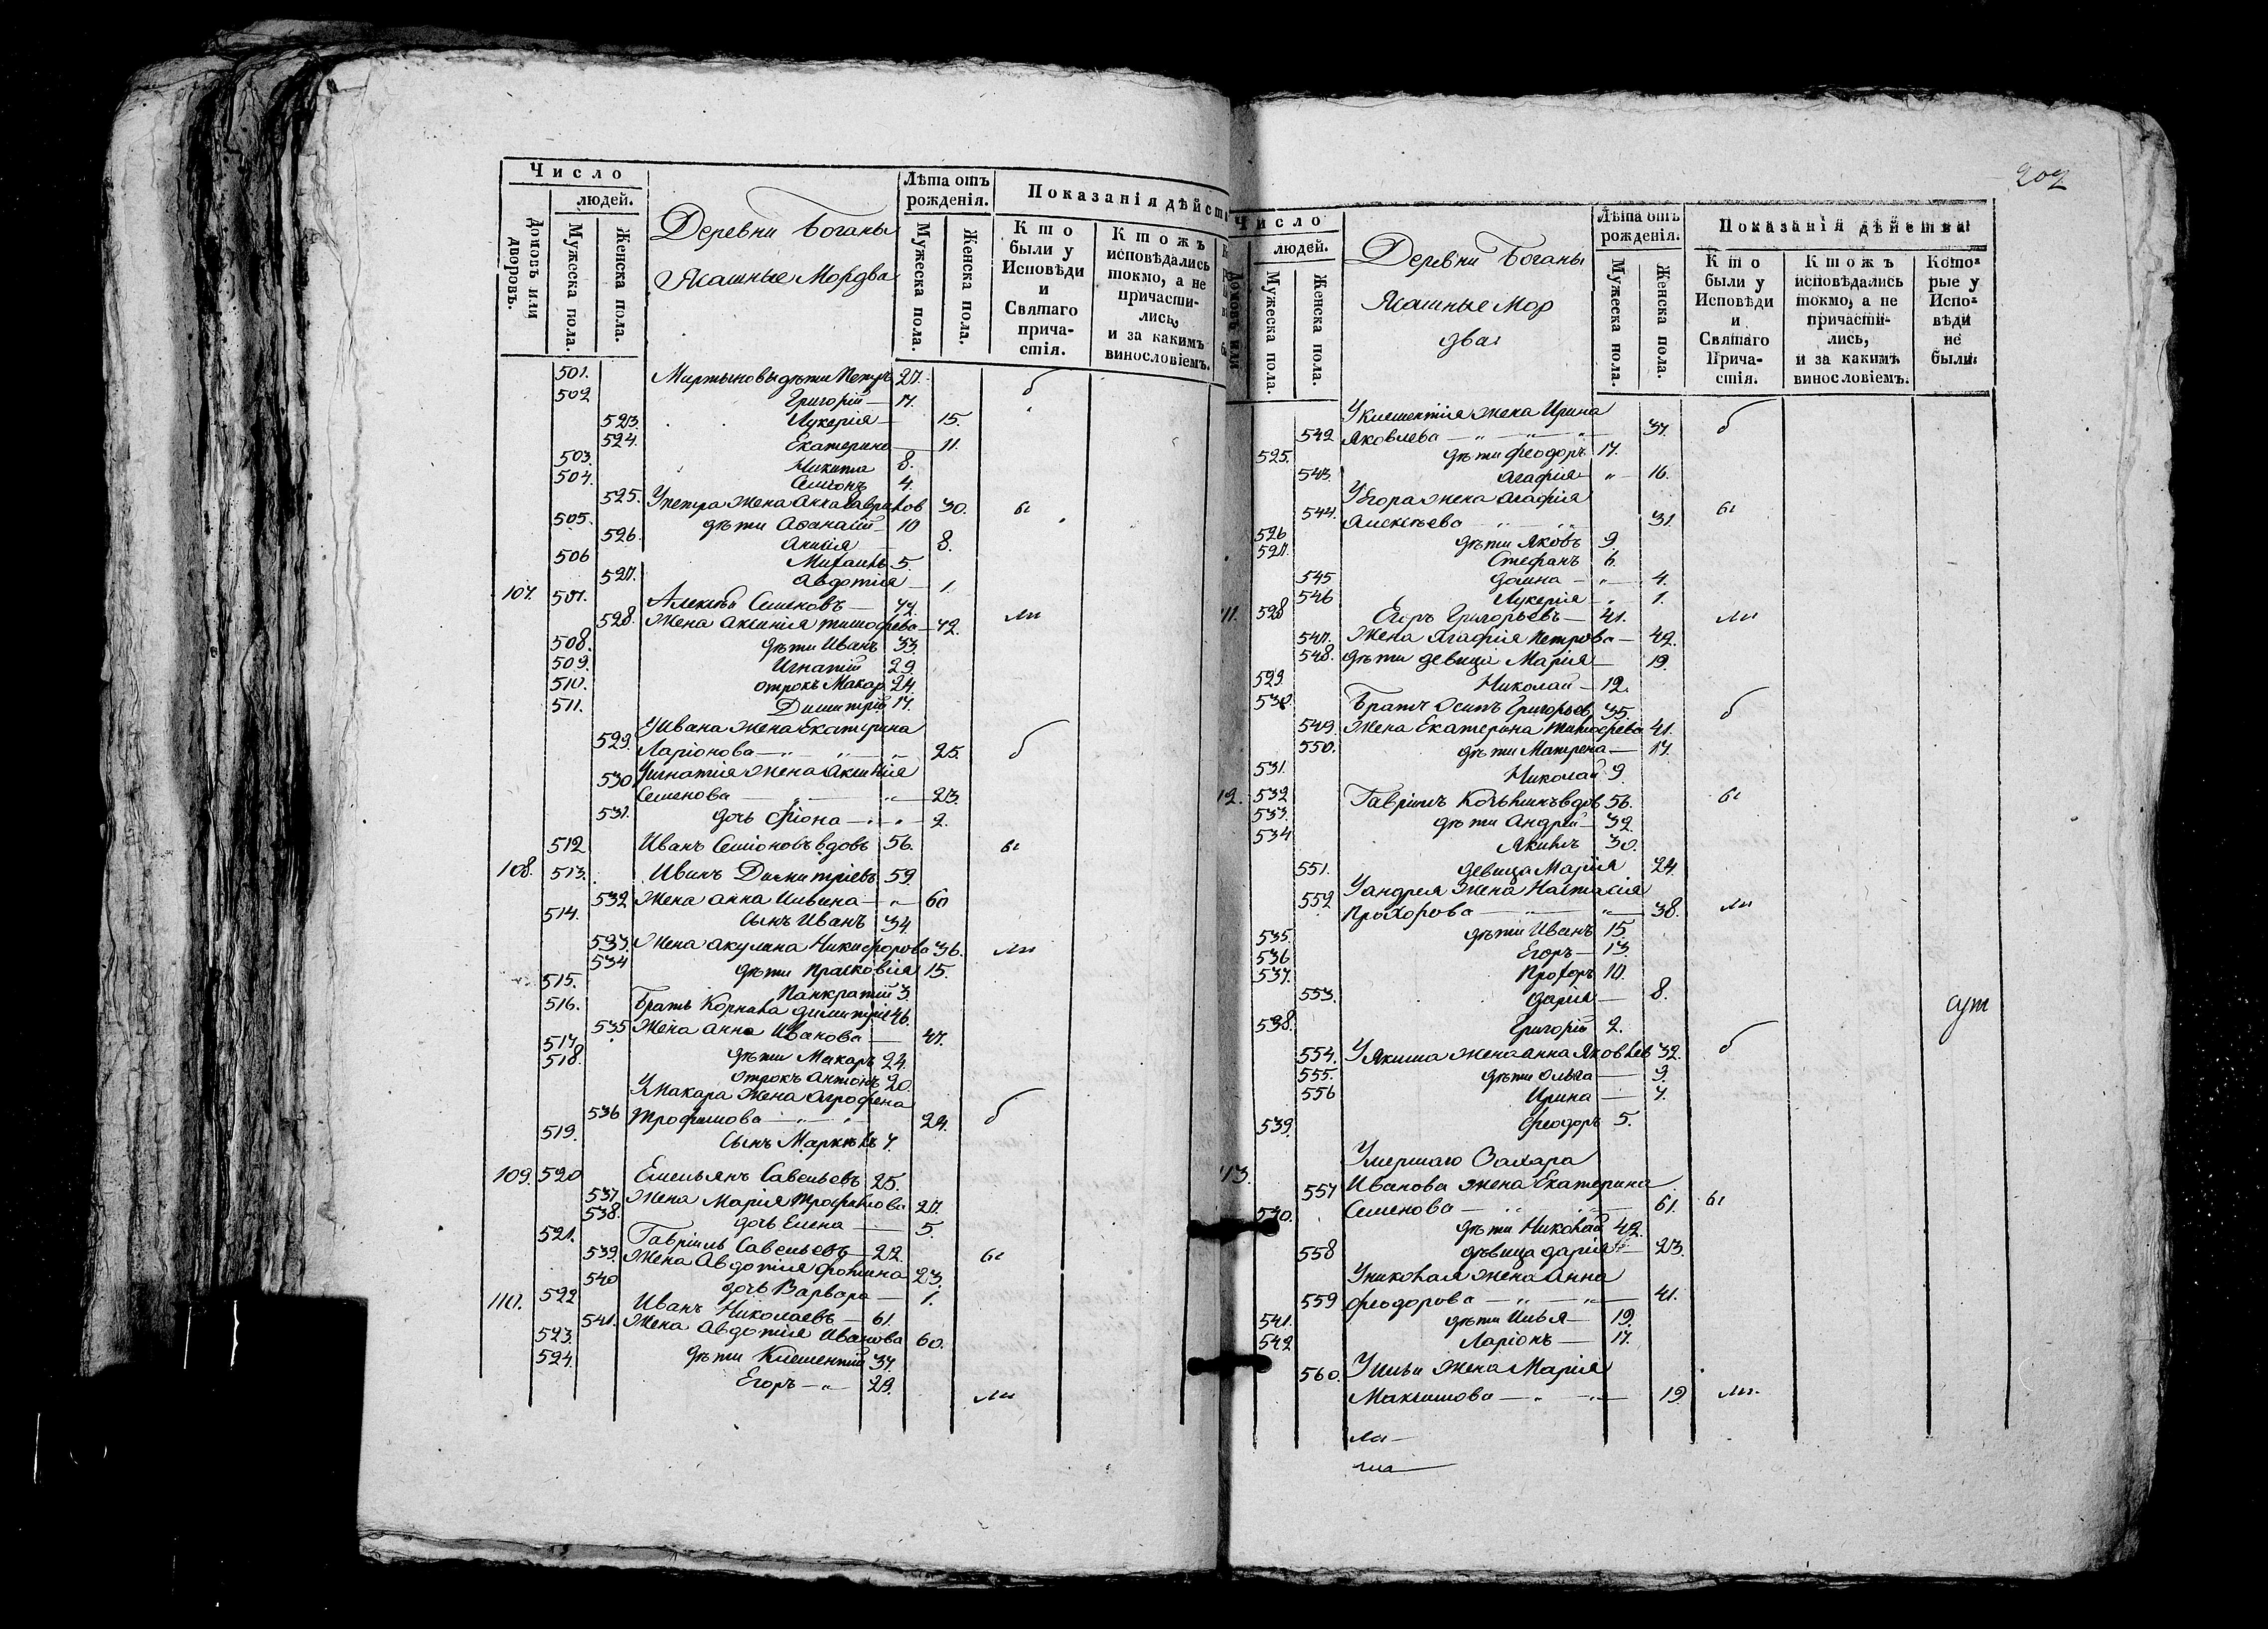 Число
людей.
Домовъ или дворовъ.
Мужеска пола.
Женска пола.
Деревни Боганы
Ясашные Мордва
Лѣта отъ рожденія.
Мужеска пола.
Женска пола.
Показанія дѣйств
Кто были у Исповѣди и Святаго причастія.
Ктожъ исповѣдались токмо, а не причастились, и за какимъ винословіемъ.
501. Мартыновы дѣти Петръ 27. б
502 Григорій — 17.
523. Лукерія — 15.
524. Екатерина — 11.
503. Никита 8.
504. Семіонъ 4.
525. У Петра жена Анна Гаврилов 30. бы
505. дѣти Афанасій — 10
526. Анисія 8.
506 Михаилъ 5.
527. Авдотія — 1.
107. 507. Алексѣй Семеновъ —
528. Жена Аксинія Тимофѣева — 42. ли
508. дѣти Иванъ 33.
509. Игнатій 29
510. отрокъ Макар 24.
511. Димитрій 17.
У Ивана жена Екатерина
529. Ларіонова — 25. б
530 У Игнатія жена Аксинія
Семенова — 23.
531. дочь Фіона — 2.
512. Иванъ Семіоновъ вдовъ 56. бы
108. 513. Иванъ Димитріевъ 59.
532 Жена Анна Ильина — 60
514. сынъ Иванъ 34
533. Жена Акулина Никифорова 36. ли
534 дѣти Прасковія 15.
515. Панкратій 3.
516. Братъ Корнила Димитріе 46.
535 Жена Анна Иванова — 47.
517. дѣти Макаръ 24.
518. отрокъ Антонъ 20.
У Макара жена Агрофена
536 Трофимова — 24. б
519. сынъ Маркелъ 4.
109. 520 Емельянъ Савельевъ 25.
537. Жена Марія Трофимова 27.
538. дочь Елена — 5.
521. Гавріилъ Савельевъ — 22.
539. Жена Авдотія Фомина 23. бы
540 дочь Варвара — 1.
110. 522 Иванъ Николаевъ — 61.
541. Жена Авдотія Иванова 60.
523. дѣти Клементій 37.
524. Егоръ — 29. ли
202
Число
людей.
Домовъ или
Мужеска пола.
Женска пола.
Деревни Боганы
Ясашные Мор
два
Лѣта отъ рожденія.
Мужеска пола.
Женска пола.
Показанія дѣйства
Кто были у Исповѣди и Святаго Причастія.
Ктожъ исповѣдались токмо, а не причастились, и за какимъ винословіемъ.
Которые у Исповѣди не были.
У Клементія жена Ирина
542 Яковлева — 37. б
525. дѣти Феодоръ 17.
543. Агафія — 16.
У Егора жена Агафія
544. Алексѣева 31. бы
526 дѣти Яковъ 9
527. Стефанъ 6.
545 Домна — 4.
546 Лукерія 1.
11. 528 Егоръ Григорьевъ — 41. ли
547. Жена Агафія Петрова — 42.
548. дѣти девица Марія — 19.
529. Николай — 12.
530. Братъ Осипъ Григорьев 35. б
549. Жена Екатерина Тимофѣева 41.
550. дѣти Матрена — 17.
531. Николай 9.
12. 532 Гавріилъ вдов 56. бы
533. дѣти Андрей — 32.
534 Якимъ 30.
551. девица Марія 24
У Андрея жена Настасія
552 Прохорова — 38. ли
535. дѣти Иванъ 15.
536 Егоръ — 13.
537. Прохоръ 10.
553. Дарія — 8.
538. Григорій 2.
554. У Якима жена Анна Яковлев 32. б
555. дѣти Ольга — 9.
556 Ирина — 7.
539. Феодоръ 5.
У мершаго Захара
13. 557 Иванова жена Екатерина
Семенова — 61. бы
540. дѣти Николай 42.
558 дѣвица Дарія — 23.
У Николая жена Анна
559 Феодорова — 41.
541. дѣти Илья — 19.
542 Ларіонъ — 17.
560. У Ильи жена Марія
Максимова — 19 ли.